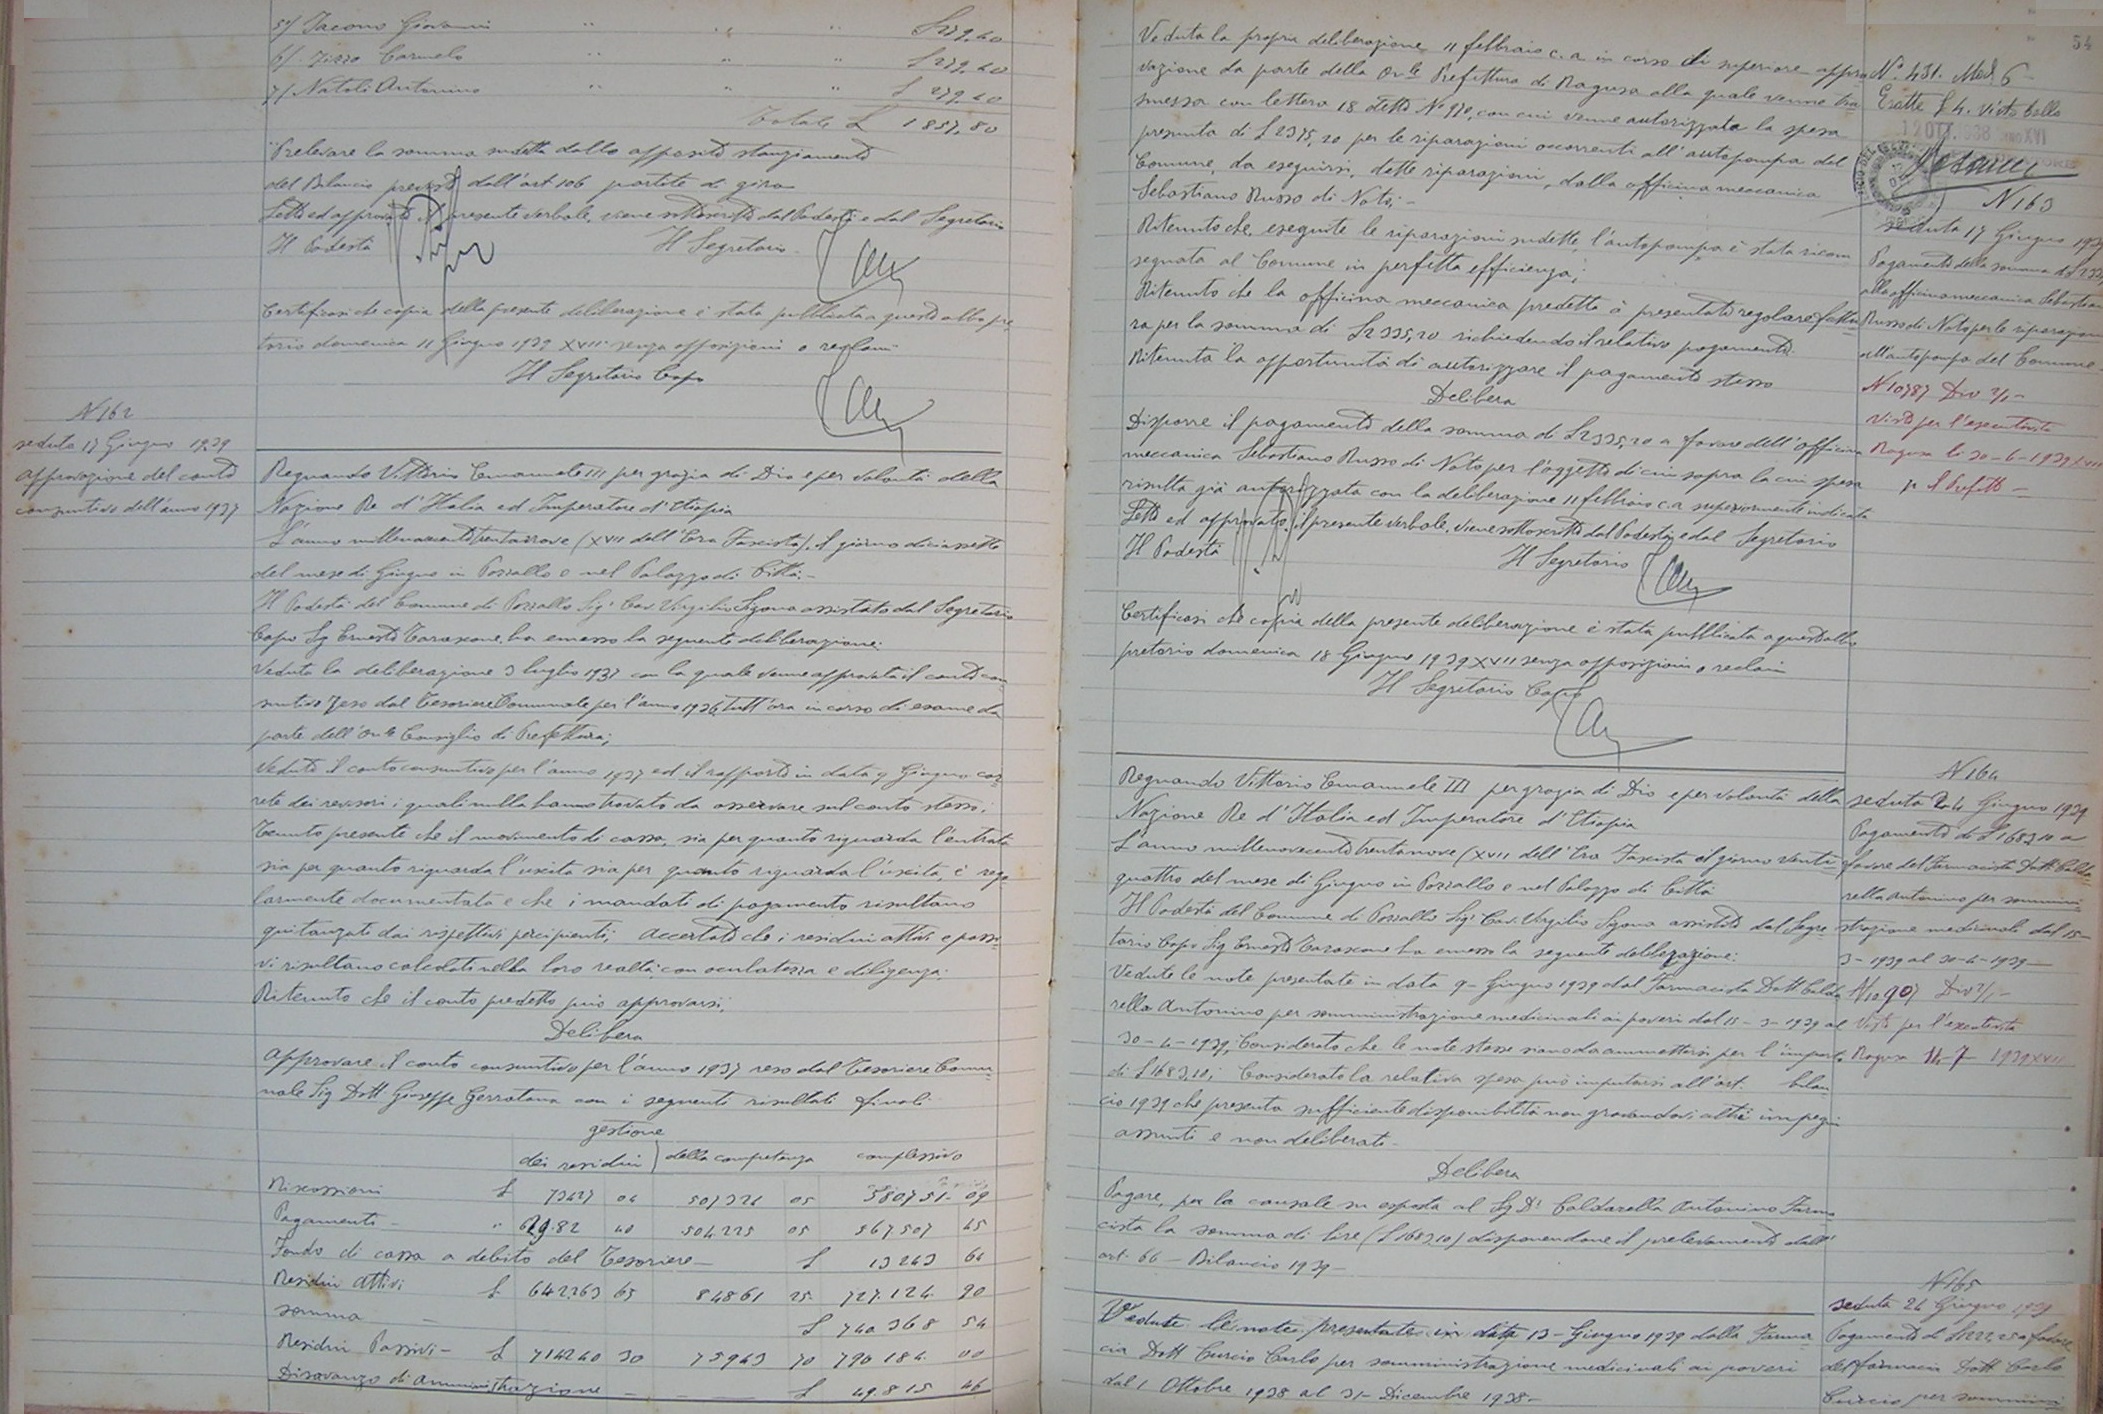 5°/ Iacono Giovanni " " " £ 279,60
6/. Tizzo Carmelo " " " £ 279,60
7/. Natoli Antonino " " " £ 279,60
Totale £ 1857,80
Prelevare la somma sudetta dallo apposito stanziamento
del Bilancio previsto dall'art 106 partite di giro
Letto ed approvato il presente verbale, viene sottoscritto dal Podestà e dal Segretario
Il Podestà Il Segretario
Certificasi che copia della presente deliberazione è stata pubblicata a questo albo pre
torio domenica 11 Giugno 1939 XVII senza opposizioni o reclami
Il Segretario Capo
N 162
seduta 17 Giugno 1939
approvazione del conto
consuntivo dell'anno 1937
Regnando Vittorio Emanuele III per grazia di Dio e per volontà della
Nazione Re d'Italia ed Imperatore d'Etiopia
L'anno millenovecentotrentanove (XVII dell'Era Fascista), il giorno diciassette
del mese di Giugno in Pozzallo e nel Palazzo di Città.-
Il Podestà del Comune di Pozzallo Sig. Cav. Virgilio Sigona assistito dal Segretario
Capo Sig Ernesto Tarascone ha emesso la seguente deliberazione:
Veduta la deliberazione 3 luglio 1937 con la quale venne approvato il conto con
suntivo reso dal Tesoriere Comunale per l'anno 1936, tutt'ora in corso di esame da
parte dell'On.le Consiglio di Prefettura;
Veduto il conto consuntivo per l'anno 1937 ed il rapporto in data 9 Giugno cor
rete dei revisori i quali nulla hanno trovato da osservare sul conto stesso;
Tenuto presente che il movimento di cassa, sia per quanto riguarda l'entrata
sia per quanto riguarda l'uscita sia per quanto riguarda l'uscita, è rego
larmente documentata e che i mandati di pagamento risultano
quitanzati dai rispettivi percipienti; Accertato che i residui attivi e passi
vi risultano calcolati nella loro realtà con oculatezza e diligenza;
Ritenuto che il conto predetto può approvarsi;
Delibera
Approvare il conto consuntivo per l'anno 1937 reso dal Tesoriere Comu
nale Sig Dott Giuseppe Gerratana con i seguenti risultati finali.
gestione
dei residui della competenza complessivo
Riscossioni £ 73427 04 507324 05 580751. 09
Pagamenti " 62982 40 504225 05 567507 45
Fondo di cassa a debito del Tesoriere £ 13243 64
Residui Attivi £ 642263 65 84861 25 727.124. 90
somma £ 740368 54
Residui Passivi £ 714240 30 75943 70 790184. 00
Disavanzo di Amministrazione £ 49.815 46
54
Veduta la propria deliberazione 11 febbraio c.a. in corso di superiore appro
vazione da parte della On.le Prefettura di Ragusa alla quale venne tra
smessa con lettera 18 detto N° 970, con cui venne autorizzata la spesa
presunta di £ 2375,20 per le riparazioni occorrenti all'autopompa del
Comune, da eseguirsi, dette riparazioni, dalla officina meccanica
Sebastiano Russo di Noto;-
Ritenuto che, eseguite le riparazioni sudette, l'autopompa è stata ricon
segnata al Comune in perfetta efficienza;
Ritenuto che la officina meccanica predetta à presentato regolare fattu
ra per la somma di £ 2335,20 richiedendo il relativo pagamento.
Ritenuta la opportunità di autorizzare il pagamento stesso
Delibera
Disporre il pagamento della somma di £ 2335,20 a favore dell'officina
meccanica Sebastiano Russo di Noto per l'oggetto di cui sopra la cui spesa
risulta già autorizzata con la deliberazione 11 febbraio c.a superiormente indicata
Letto ed approvato, il presente verbale, viene sottoscritto dal Podestà e dal Segretario
Il Podestà Il Segretario
Certificasi che copia della presente deliberazione è stata pubblicata a questo albo
pretorio domenica 18 Giugno 1939 XVII senza opposizioni o reclami
Il Segretario Capo
N° 431. Mod. 6
Esatte £ 4. visto bollo
12 OTT. 1938 ANNO XVI
N 163
seduta 17 Giugno 1939
Pagamento della somma di £ 2335,
alla officina meccanica Sebastiano
Russo di Noto per le riparazioni
all'autopompa del Comune
N 10787 Div 2/1-
Visto per l'esecutorietà
Ragusa lì 30-6-1939 XVII
p. Il Prefetto -
Regnando Vittorio Emanuele III per grazia di Dio e per volontà della
Nazione Re d'Italia ed Imperatore d'Etiopia
L'anno millenovecentotrentanove (XVII dell'Era Fascista il giorno venti
quattro del mese di Giugno in Pozzallo e nel Palazzo di Città
Il Podestà del Comune di Pozzallo Sig. Cav. Virgilio Sigona assistito dal Segre-
tario Capo Sig Ernesto Tarascone ha emesso la seguente deliberazione:
Vedute le note presentate in data 9- Giugno 1939 dal Farmacista Dott Calda
rella Antonino per somministrazione medicinali ai poveri dal 15-3-1939 al
30-4-1939; Considerato che le note stesse siano da ammettersi per l'importo
di £ 1683,10; Considerato la relativa spesa può imputarsi all'art. bilan
cio 1939 che presenta sufficiente disponibilità non gravandovi altri impegni
assunti e non deliberati.
Delibera
Pagare, per la causale su esposta al Sig Dr Caldarella Antonino Farma
cista la somma di lire (£ 1683,10) disponendone il prelevamento dall'
art. 66 - Bilancio 1939-
N 164
seduta 24 Giugno 1939
Pagamento di £ 1683,10 a
favore del Farmacista Dott Calda-
rella Antonino per sommini
strazione medicinali dal 15-
3-1939 al 30-4-1939
N 10907 Div 2/1-
Visto per l'esecutorietà
Ragusa 14-7-1939 XVII
Vedute le note presentate in data 13-Giugno 1939 dalla Farma
cia Dott Curcio Carlo per somministrazione medicinali ai poveri
dal 1 Ottobre 1938 al 31-Dicembre 1938-
N 165
seduta 24 Giugno 1939
Pagamento di £ 1222,25 a favore
del farmacia Dott Carlo
Curcio per sommini